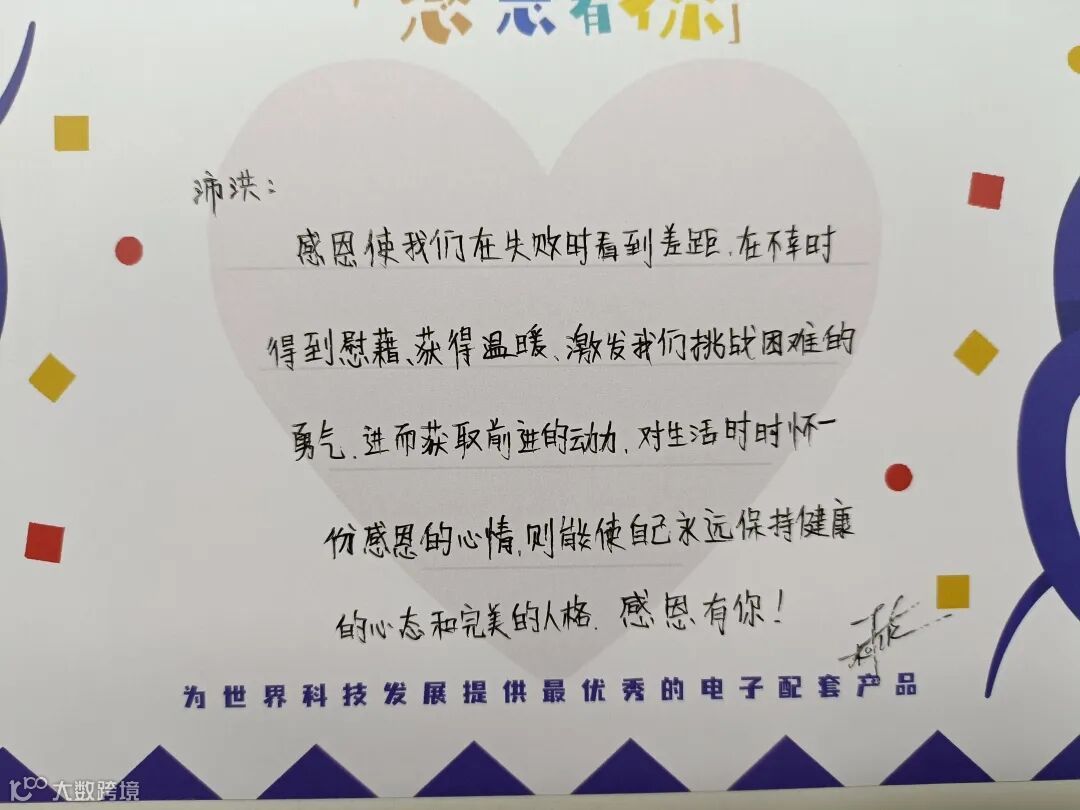 「感恩有你」
沛洪：
感恩使我们在失败时看到差距，在不幸时
得到慰藉、获得温暖、激发我们挑战困难的
勇气，进而获取前进的动力，对生活时时怀一
份感恩的心情，则能使自己永远保持健康
的心态和完美的人格。感恩有你！
为世界科技发展提供最优秀的电子配套产品
大数跨境